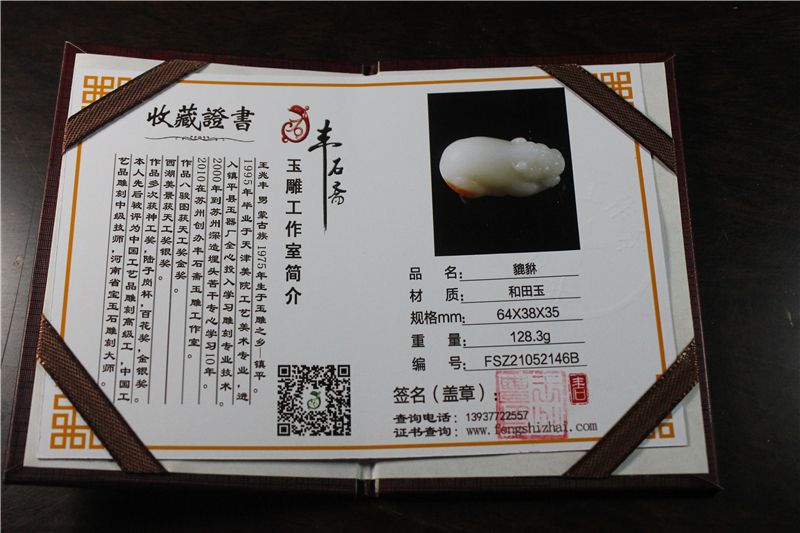 收藏證書
丰石斋
玉雕工作室简介
王兆丰 男 蒙古族 1975年生于玉雕之乡—镇平。
1995年毕业于天津美院工艺美术专业，进
入镇平县玉器厂全心投入学习雕刻专业技术。
2000年到苏州深造埋头苦干专心学习10年。
2010在苏州创办丰石斋玉雕工作室。
作品八骏图获天工奖金奖。
西湖美景获天工奖银奖。
作品多次获神工奖，陆子岗杯，百花奖，金银奖。
本人先后被评为中国工艺品雕刻高级工，中国工
艺品雕刻中级技师，河南省宝玉石雕刻大师。
品 名：貔貅
材 质：和田玉
规格mm：64X38X35
重 量：128.3g
编 号：FSZ21052146B
签名（盖章）：
查询电话：13937722557
证书查询：www.fengshizhai.com